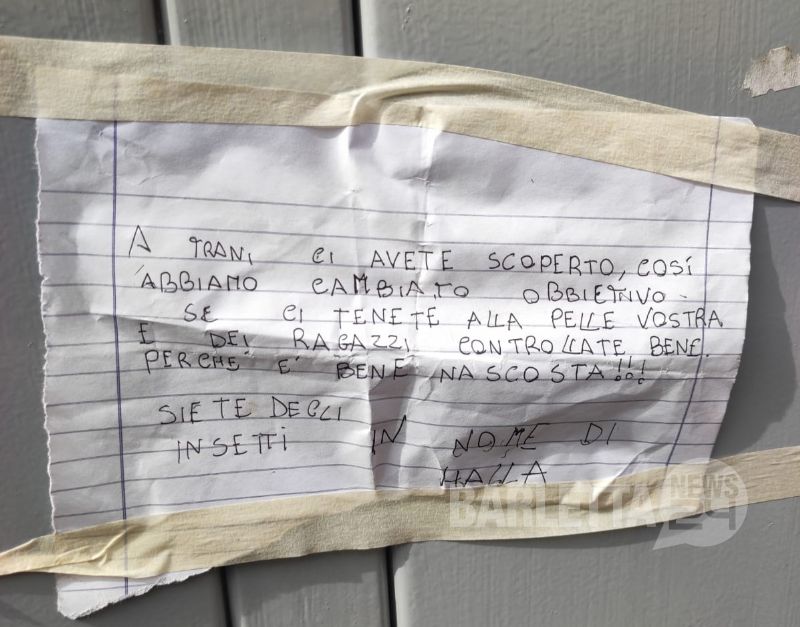 A TRANI CI AVETE SCOPERTO, COSÍ
ABBIAMO CAMBIATO OBBIETIVO -
SE CI TENETE ALLA PELLE VOSTRA
E DEI RAGAZZI CONTROLLATE BENE.
PERCHÉ E' BENE NASCOSTA!!!
SIETE DEGLI
INSETTI IN NOME DI
HALLA
BARLETTA NEWS
24